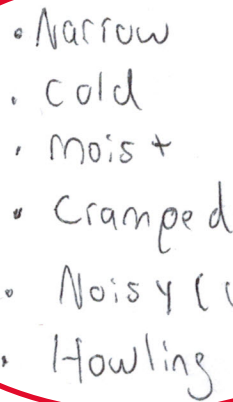 • Narrow
• Cold
• Moist
• Cramped
• Noisy (
• Howling